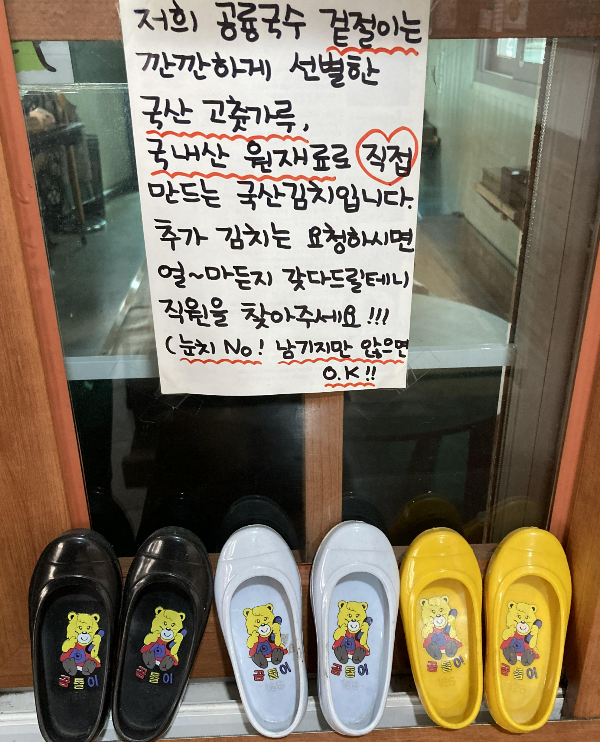 저희 공룡국수 겉절이는
깐깐하게 선별한
국산 고춧가루,
국내산 원재료로 직접
만드는 국산김치입니다.
추가 김치는 요청하시면
열~마든지 갖다드릴테니
직원을 찾아주세요!!!
(눈치 No! 남기지만 않으면
O.K!!
곰돌이
곰돌이
곰돌이
곰돌이
곰돌이
곰돌이